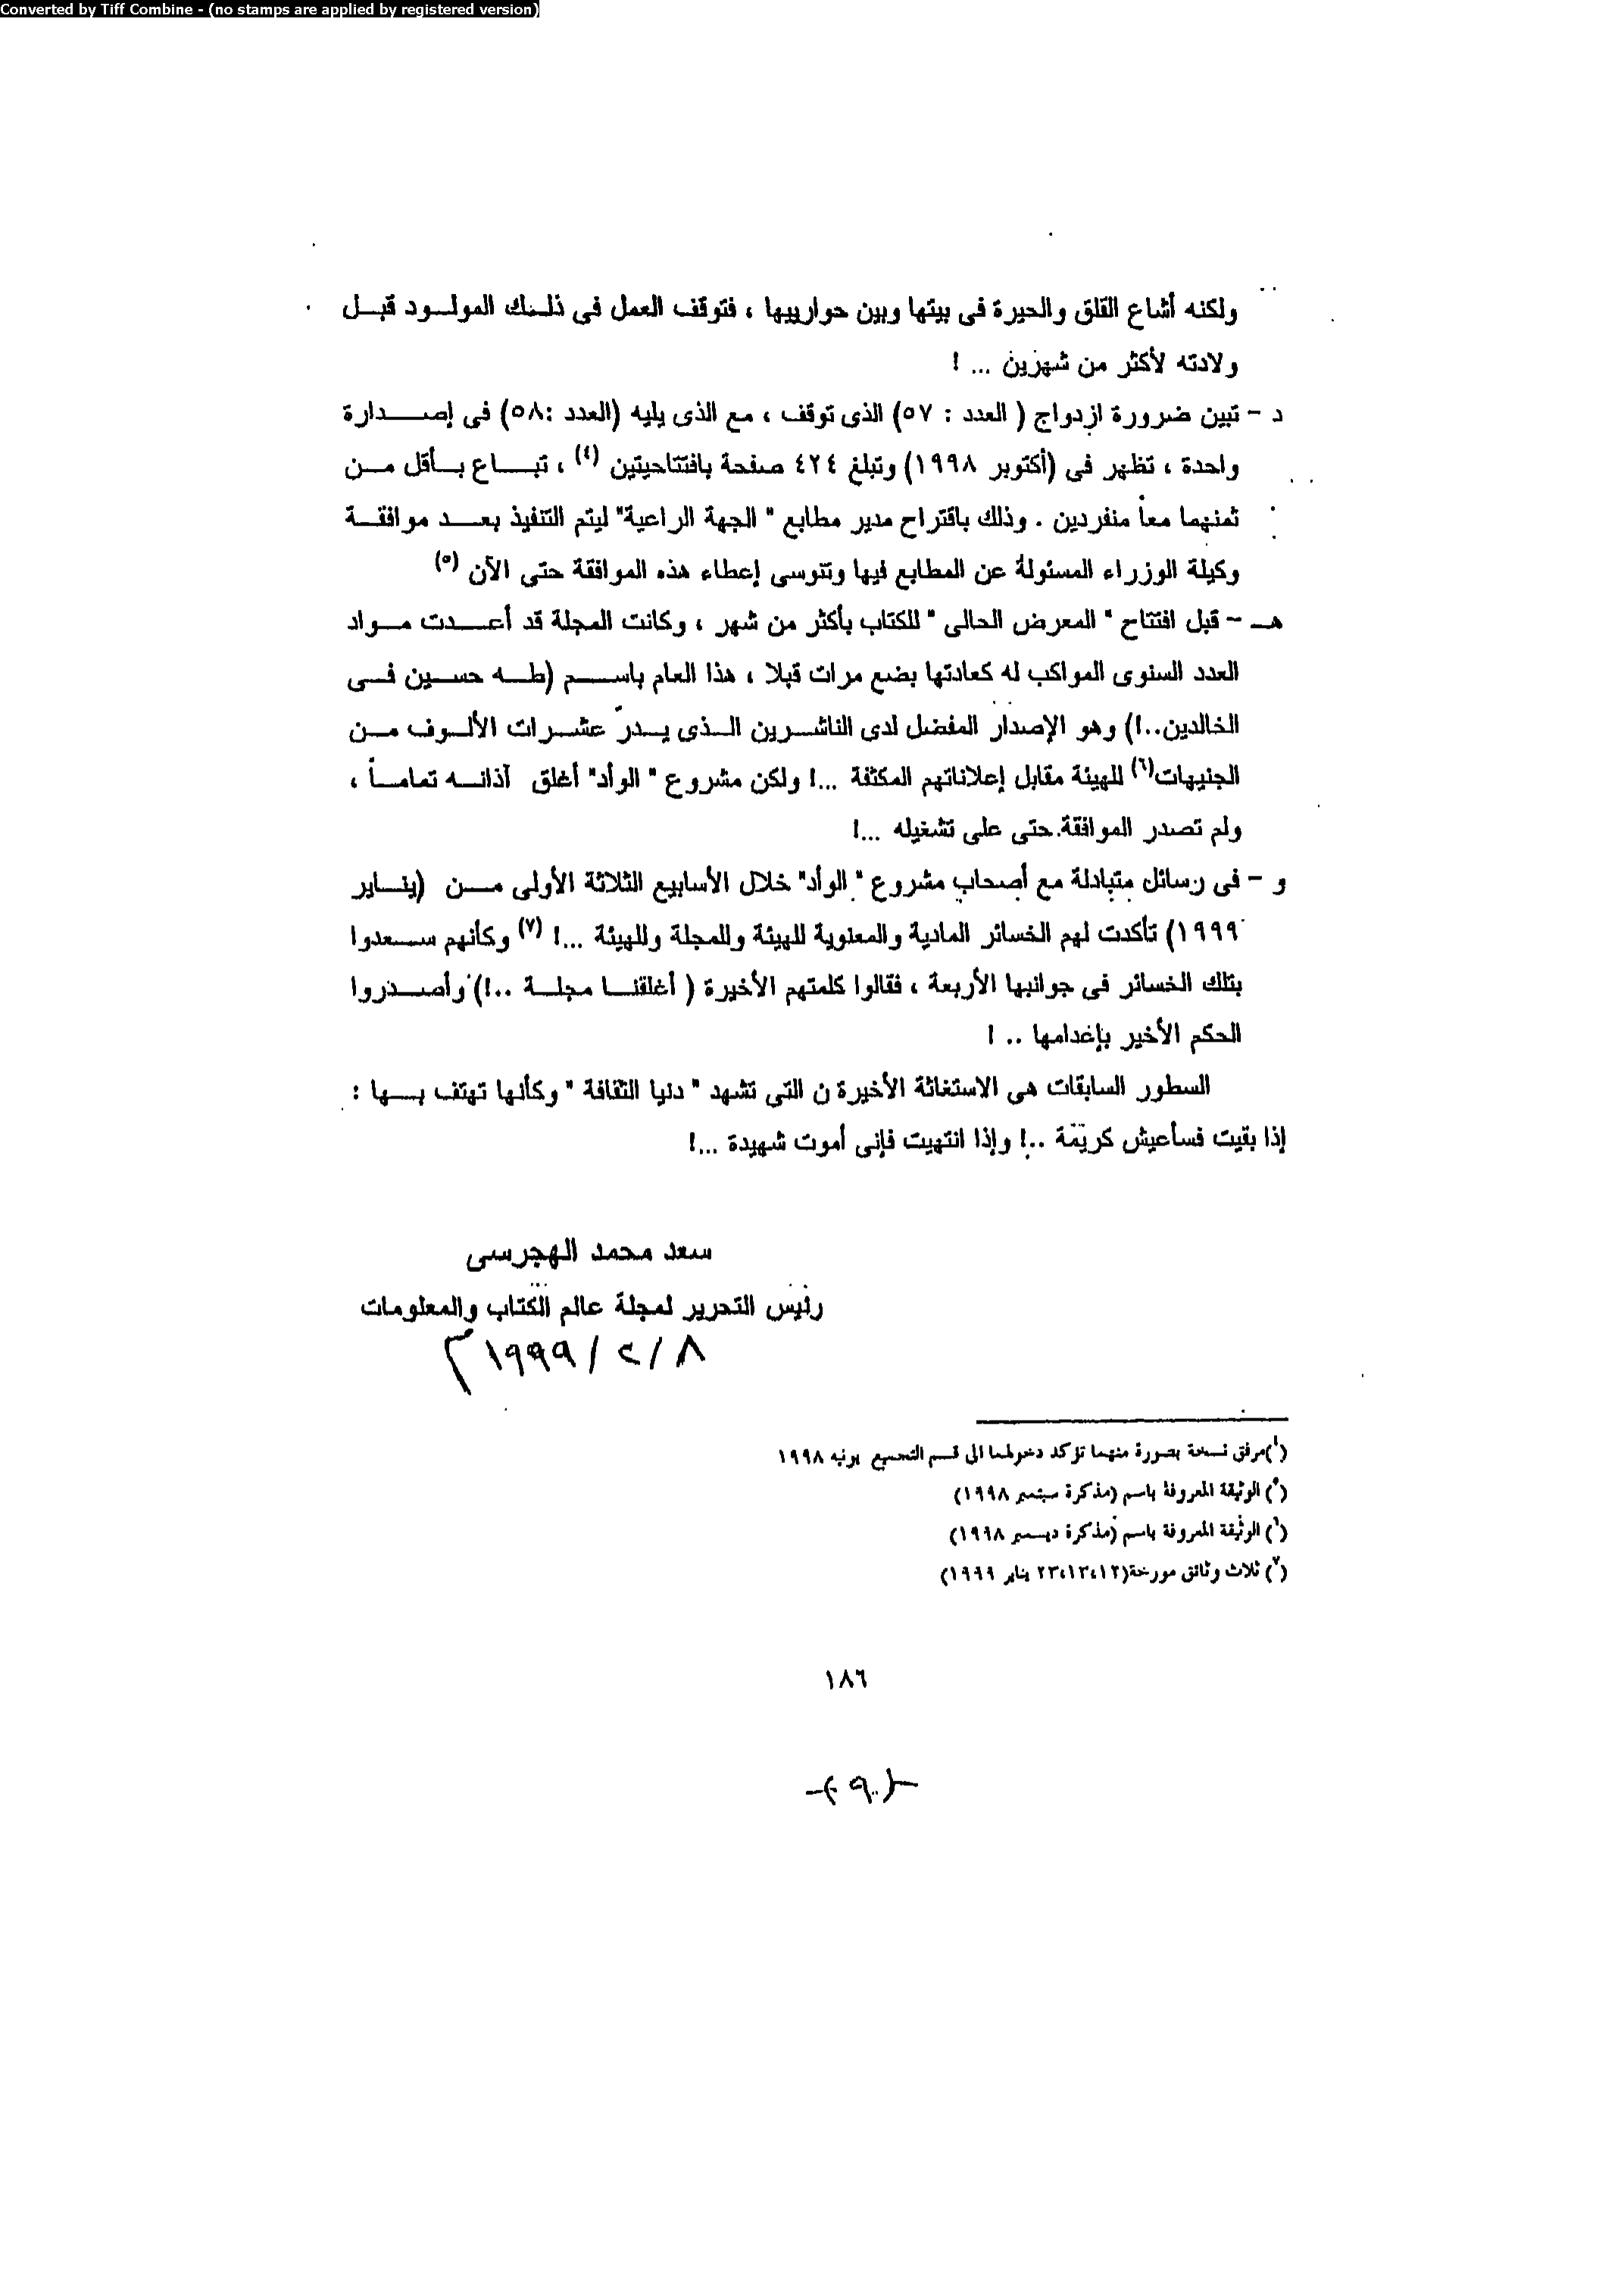 Converted by Tiff Combine - (no stamps are applied by registered version)
ولكنه أشاع القلق والحيرة فى بيتها وبين حوارييها ، فتوقف العمل فى ذلك المولود قبل
ولادته لأكثر من شهرين ... !
د - تبين ضرورة ازدواج ( العدد : ٥٧) الذى توقف ، مع الذى يليه (العدد :٥٨) فى إصدارة
واحدة ، تظهر فى (أكتوبر ١٩٩٨) وتبلغ ٤٢٤ صفحة بافتتاحيتين (٤) ، تباع بأقل من
ثمنهما معاً منفردين . وذلك باقتراح مدير مطابع " الجهة الراعية" ليتم التنفيذ بعد موافقة
وكيلة الوزراء المسئولة عن المطابع فيها وتنوسى إعطاء هذه الموافقة حتى الآن (٥)
هـ - قبل افتتاح " المعرض الحالى " للكتاب بأكثر من شهر ، وكانت المجلة قد أعدت مواد
العدد السنوى المواكب له كعادتها بضع مرات قبلا ، هذا العام باسم (طه حسين فى
الخالدين..!) وهو الإصدار المفضل لدى الناشرين الذى يدر عشرات الألوف من
الجنيهات(٦) للهيئة مقابل إعلاناتهم المكثفة ...! ولكن مشروع " الوأد" أغلق آذانه تماماً ،
ولم تصدر الموافقة حتى على تشغيله ...!
و - فى رسائل متبادلة مع أصحاب مشروع " الوأد" خلال الأسابيع الثلاثة الأولى من (يناير
١٩٩٩) تأكدت لهم الخسائر المادية والمعنوية للهيئة وللمجلة وللهيئة ...! (٧) وكأنهم سعدوا
بتلك الخسائر فى جوانبها الأربعة ، فقالوا كلمتهم الأخيرة ( أغلقنا مجلة ..!) وأصدروا
الحكم الأخير بإعدامها .. !
السطور السابقات هى الاستغاثة الأخيرة ن التى تشهد " دنيا الثقافة " وكأنها تهتف بها :
إذا بقيت فسأعيش كريمة ..! وإذا انتهيت فإنى أموت شهيدة ...!
سعد محمد الهجرسى
رئيس التحرير لمجلة عالم الكتاب والمعلومات
٨ / ٢ / ١٩٩٩م
(٤)مرفق نسخة بصورة منهما تؤكد دخولهما الى قسم التجميع يونيه ١٩٩٨
(٥) الوثيقة المعروفة باسم (مذكرة سبتمبر ١٩٩٨)
(٦) الوثيقة المعروفة باسم (مذكرة ديسمبر ١٩٩٨)
(٧) ثلاث وثائق مورخة(٢٣،١٣،١٢ يناير ١٩٩٩)
١٨٦